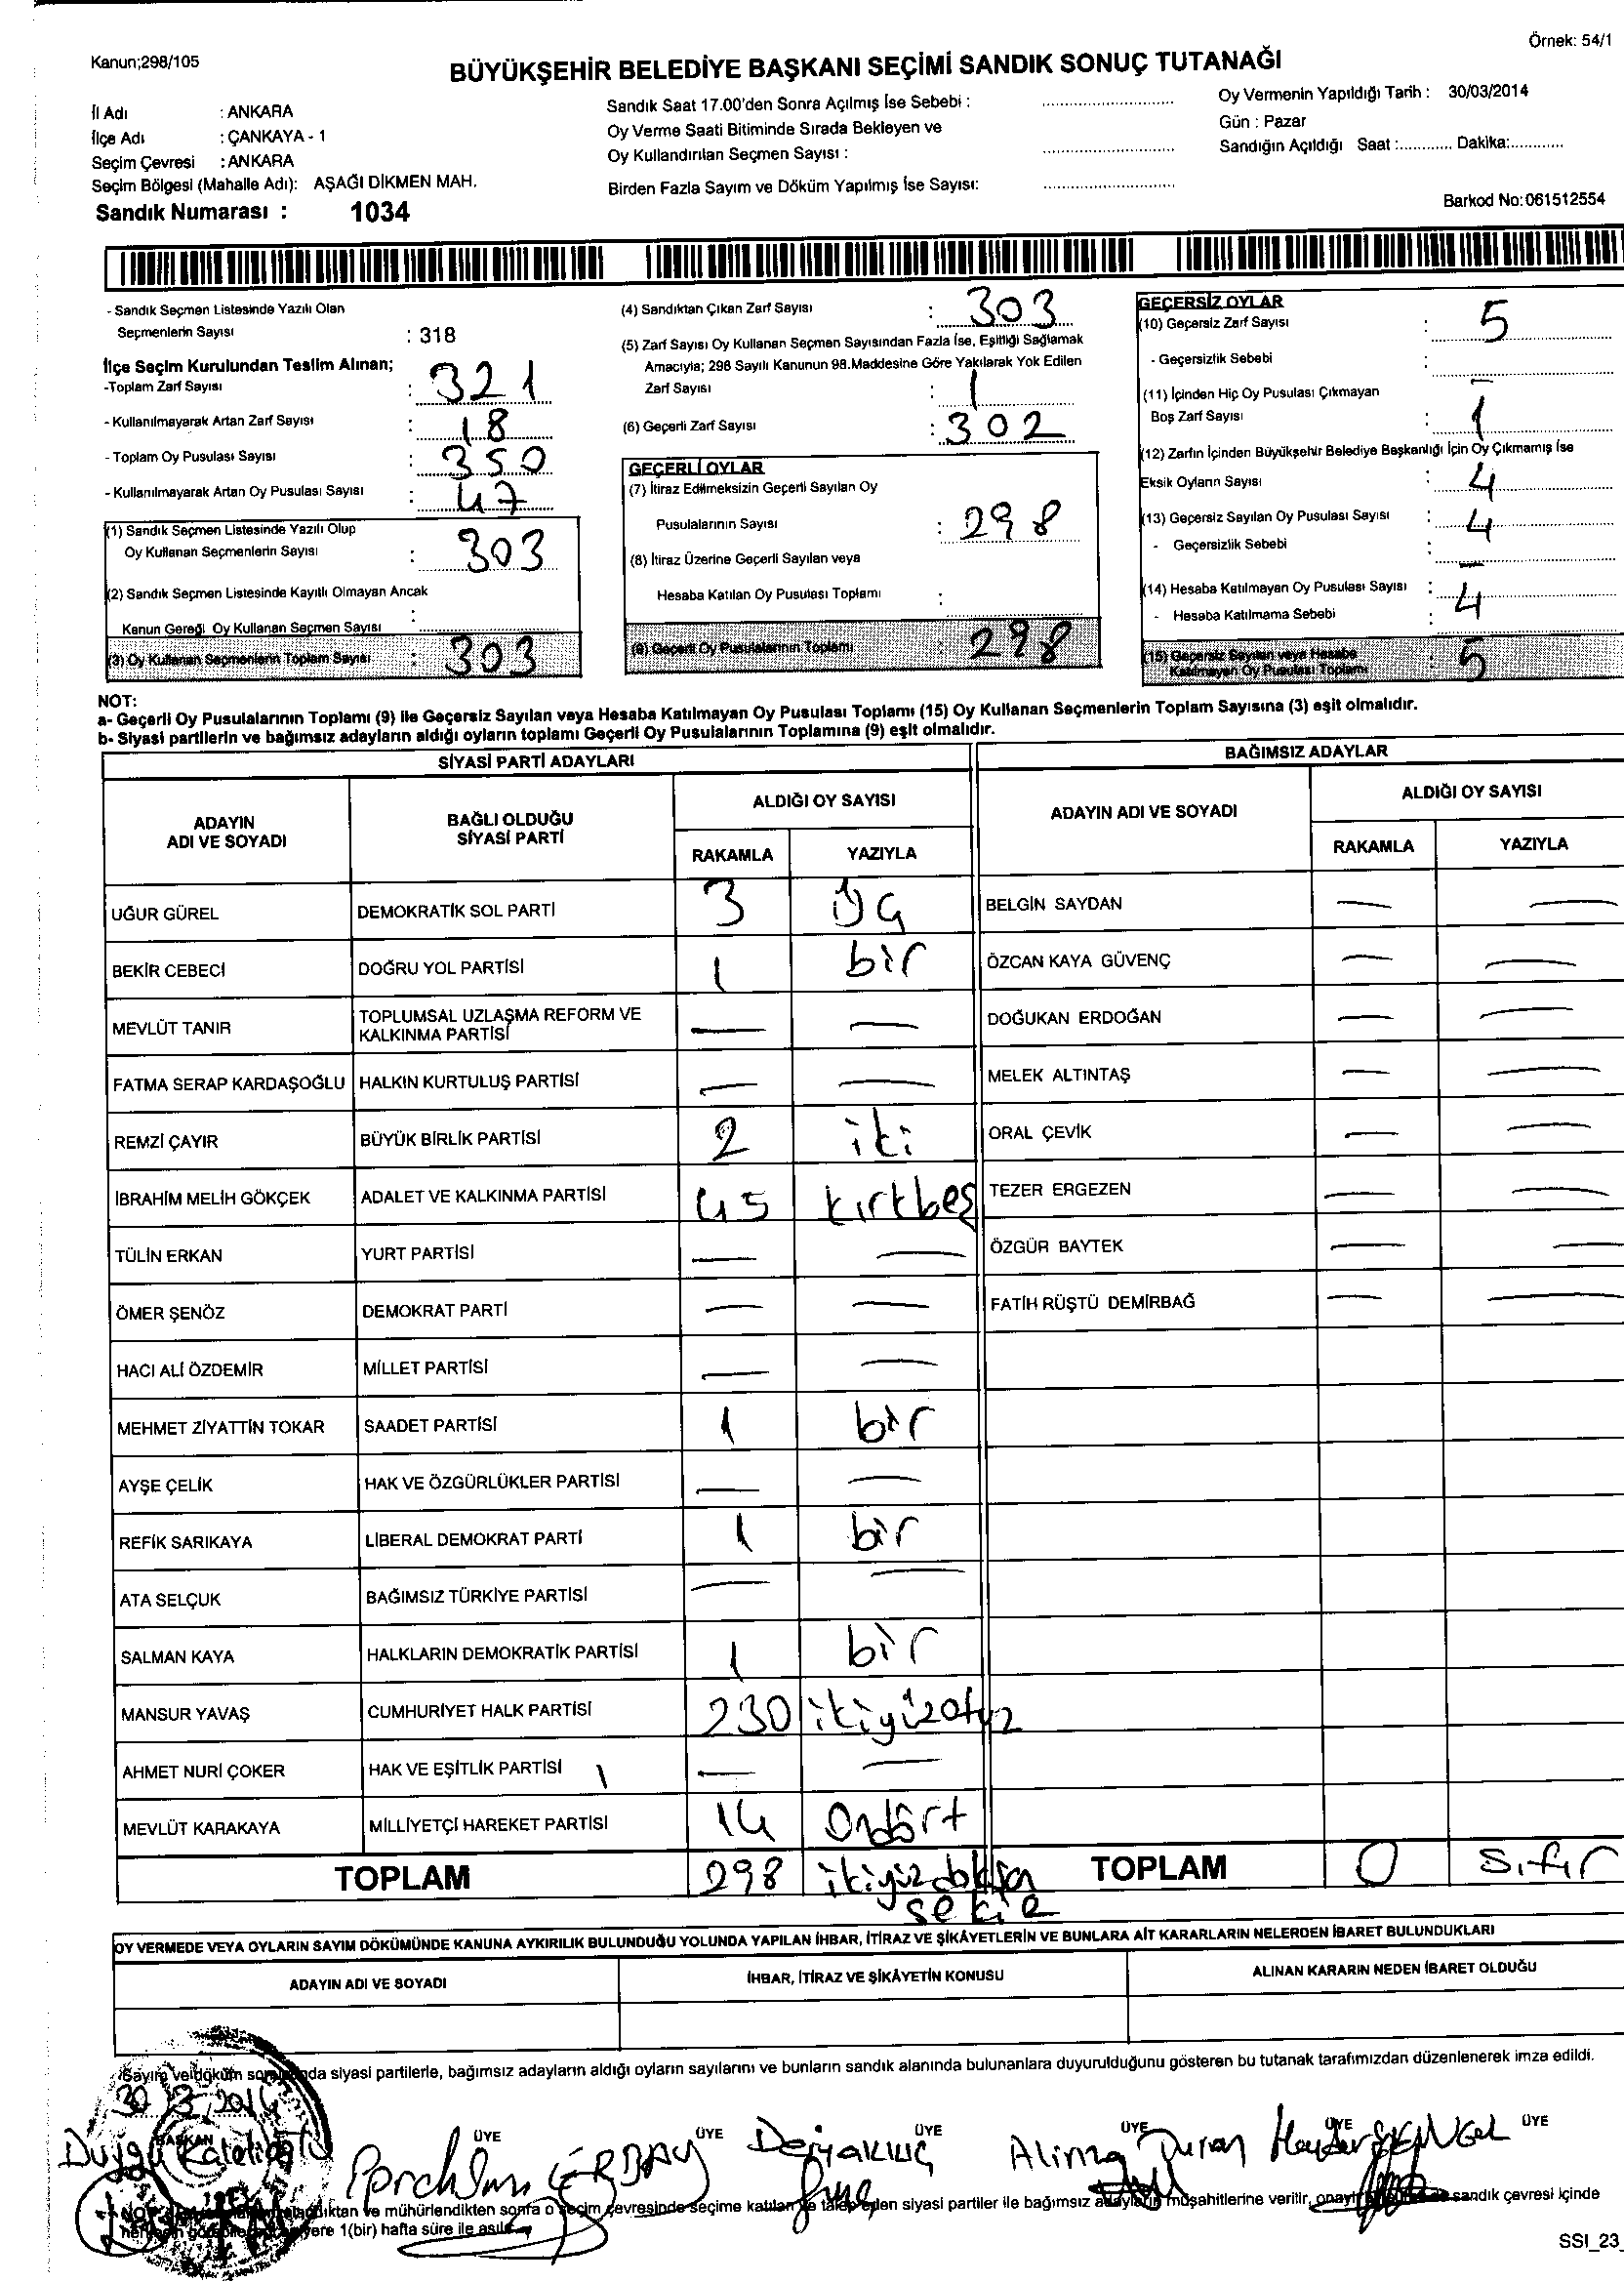 Örnek: 54/1
Kanun;298/105
BÜYÜKŞEHİR BELEDİYE BAŞKANI SEÇİMİ SANDIK SONUÇ TUTANAĞI
İl Adı : ANKARA
İlçe Adı : ÇANKAYA - 1
Seçim Çevresi : ANKARA
Seçim Bölgesi (Mahalle Adı): AŞAĞI DİKMEN MAH.
Sandık Numarası : 1034
Sandık Saat 17.00'den Sonra Açılmış İse Sebebi :
Oy Verme Saati Bitiminde Sırada Bekleyen ve
Oy Kullandırılan Seçmen Sayısı :
Birden Fazla Sayım ve Döküm Yapılmış İse Sayısı:
Oy Vermenin Yapıldığı Tarih : 30/03/2014
Gün : Pazar
Sandığın Açıldığı Saat :............ Dakika:............
Barkod No:061512554
- Sandık Seçmen Listesinde Yazılı Olan
Seçmenlerin Sayısı : 318
İlçe Seçim Kurulundan Teslim Alınan;
-Toplam Zarf Sayısı : 321
- Kullanılmayarak Artan Zarf Sayısı : 18
- Toplam Oy Pusulası Sayısı : 350
- Kullanılmayarak Artan Oy Pusulası Sayısı : 47
(1) Sandık Seçmen Listesinde Yazılı Olup
Oy Kullanan Seçmenlerin Sayısı : 303
(2) Sandık Seçmen Listesinde Kayıtlı Olmayan Ancak
Kanun Gereği Oy Kullanan Seçmen Sayısı :
(3) Oy Kullanan Seçmenlerin Toplam Sayısı : 303
(4) Sandıktan Çıkan Zarf Sayısı : 303
(5) Zarf Sayısı Oy Kullanan Seçmen Sayısından Fazla İse, Eşitliği Sağlamak
Amacıyla; 298 Sayılı Kanunun 98.Maddesine Göre Yakılarak Yok Edilen
Zarf Sayısı : 1
(6) Geçerli Zarf Sayısı : 302
GEÇERLİ OYLAR
(7) İtiraz Edilmeksizin Geçerli Sayılan Oy
Pusulalarının Sayısı : 298
(8) İtiraz Üzerine Geçerli Sayılan veya
Hesaba Katılan Oy Pusulası Toplamı :
(9) Geçerli Oy Pusulalarının Toplamı : 298
GEÇERSİZ OYLAR
(10) Geçersiz Zarf Sayısı : 5
- Geçersizlik Sebebi : -
(11) İçinden Hiç Oy Pusulası Çıkmayan
Boş Zarf Sayısı : 1
(12) Zarfın İçinden Büyükşehir Belediye Başkanlığı İçin Oy Çıkmamış İse
Eksik Oyların Sayısı : 4
(13) Geçersiz Sayılan Oy Pusulası Sayısı : 4
- Geçersizlik Sebebi : -
(14) Hesaba Katılmayan Oy Pusulası Sayısı : 4
- Hesaba Katılmama Sebebi :
(15) Geçersiz Sayılan veya Hesaba
Katılmayan Oy Pusulası Toplamı : 5
NOT:
a- Geçerli Oy Pusulalarının Toplamı (9) ile Geçersiz Sayılan veya Hesaba Katılmayan Oy Pusulası Toplamı (15) Oy Kullanan Seçmenlerin Toplam Sayısına (3) eşit olmalıdır.
b- Siyasi partilerin ve bağımsız adayların aldığı oyların toplamı Geçerli Oy Pusulalarının Toplamına (9) eşit olmalıdır.
SİYASİ PARTİ ADAYLARI
ADAYIN ADI VE SOYADI
BAĞLI OLDUĞU SİYASİ PARTİ
ALDIĞI OY SAYISI
RAKAMLA YAZIYLA
UĞUR GÜREL DEMOKRATİK SOL PARTİ 3 üç
BEKİR CEBECİ DOĞRU YOL PARTİSİ 1 bir
MEVLÜT TANIR TOPLUMSAL UZLAŞMA REFORM VE KALKINMA PARTİSİ — —
FATMA SERAP KARDAŞOĞLU HALKIN KURTULUŞ PARTİSİ — —
REMZİ ÇAYIR BÜYÜK BİRLİK PARTİSİ 2 iki
İBRAHİM MELİH GÖKÇEK ADALET VE KALKINMA PARTİSİ 45 kırkbeş
TÜLİN ERKAN YURT PARTİSİ — —
ÖMER ŞENÖZ DEMOKRAT PARTİ — —
HACI ALİ ÖZDEMİR MİLLET PARTİSİ — —
MEHMET ZİYATTİN TOKAR SAADET PARTİSİ 1 bir
AYŞE ÇELİK HAK VE ÖZGÜRLÜKLER PARTİSİ — —
REFİK SARIKAYA LİBERAL DEMOKRAT PARTİ 1 bir
ATA SELÇUK BAĞIMSIZ TÜRKİYE PARTİSİ — —
SALMAN KAYA HALKLARIN DEMOKRATİK PARTİSİ 1 bir
MANSUR YAVAŞ CUMHURİYET HALK PARTİSİ 230 ikiyüzotuz
AHMET NURİ ÇOKER HAK VE EŞİTLİK PARTİSİ — —
MEVLÜT KARAKAYA MİLLİYETÇİ HAREKET PARTİSİ 14 Ondört
TOPLAM 298 ikiyüzdoksan
sekiz
BAĞIMSIZ ADAYLAR
ADAYIN ADI VE SOYADI
ALDIĞI OY SAYISI
RAKAMLA YAZIYLA
BELGİN SAYDAN — —
ÖZCAN KAYA GÜVENÇ — —
DOĞUKAN ERDOĞAN — —
MELEK ALTINTAŞ — —
ORAL ÇEVİK — —
TEZER ERGEZEN — —
ÖZGÜR BAYTEK — —
FATİH RÜŞTÜ DEMİRBAĞ — —
TOPLAM 0 Sıfır
OY VERMEDE VEYA OYLARIN SAYIM DÖKÜMÜNDE KANUNA AYKIRILIK BULUNDUĞU YOLUNDA YAPILAN İHBAR, İTİRAZ VE ŞİKÂYETLERİN VE BUNLARA AİT KARARLARIN NELERDEN İBARET BULUNDUKLARI
ADAYIN ADI VE SOYADI
İHBAR, İTİRAZ VE ŞİKÂYETİN KONUSU
ALINAN KARARIN NEDEN İBARET OLDUĞU
Sayım ve döküm sonunda siyasi partilerle, bağımsız adayların aldığı oyların sayılarını ve bunların sandık alanında bulunanlara duyurulduğunu gösteren bu tutanak tarafımızdan düzenlenerek imza edildi.
30/3/2014
BAŞKAN ÜYE ÜYE ÜYE ÜYE ÜYE ÜYE
Duygu ERBAY Derya KILIÇ Duran Haydar ŞENGEL
ve mühürlendikten sonra o seçim çevresinde seçime katılan ve talep eden siyasi partiler ile bağımsız adayların müşahitlerine verilir, sandık çevresi içinde
yere 1(bir) hafta süre ile asılır.
SSI_23_